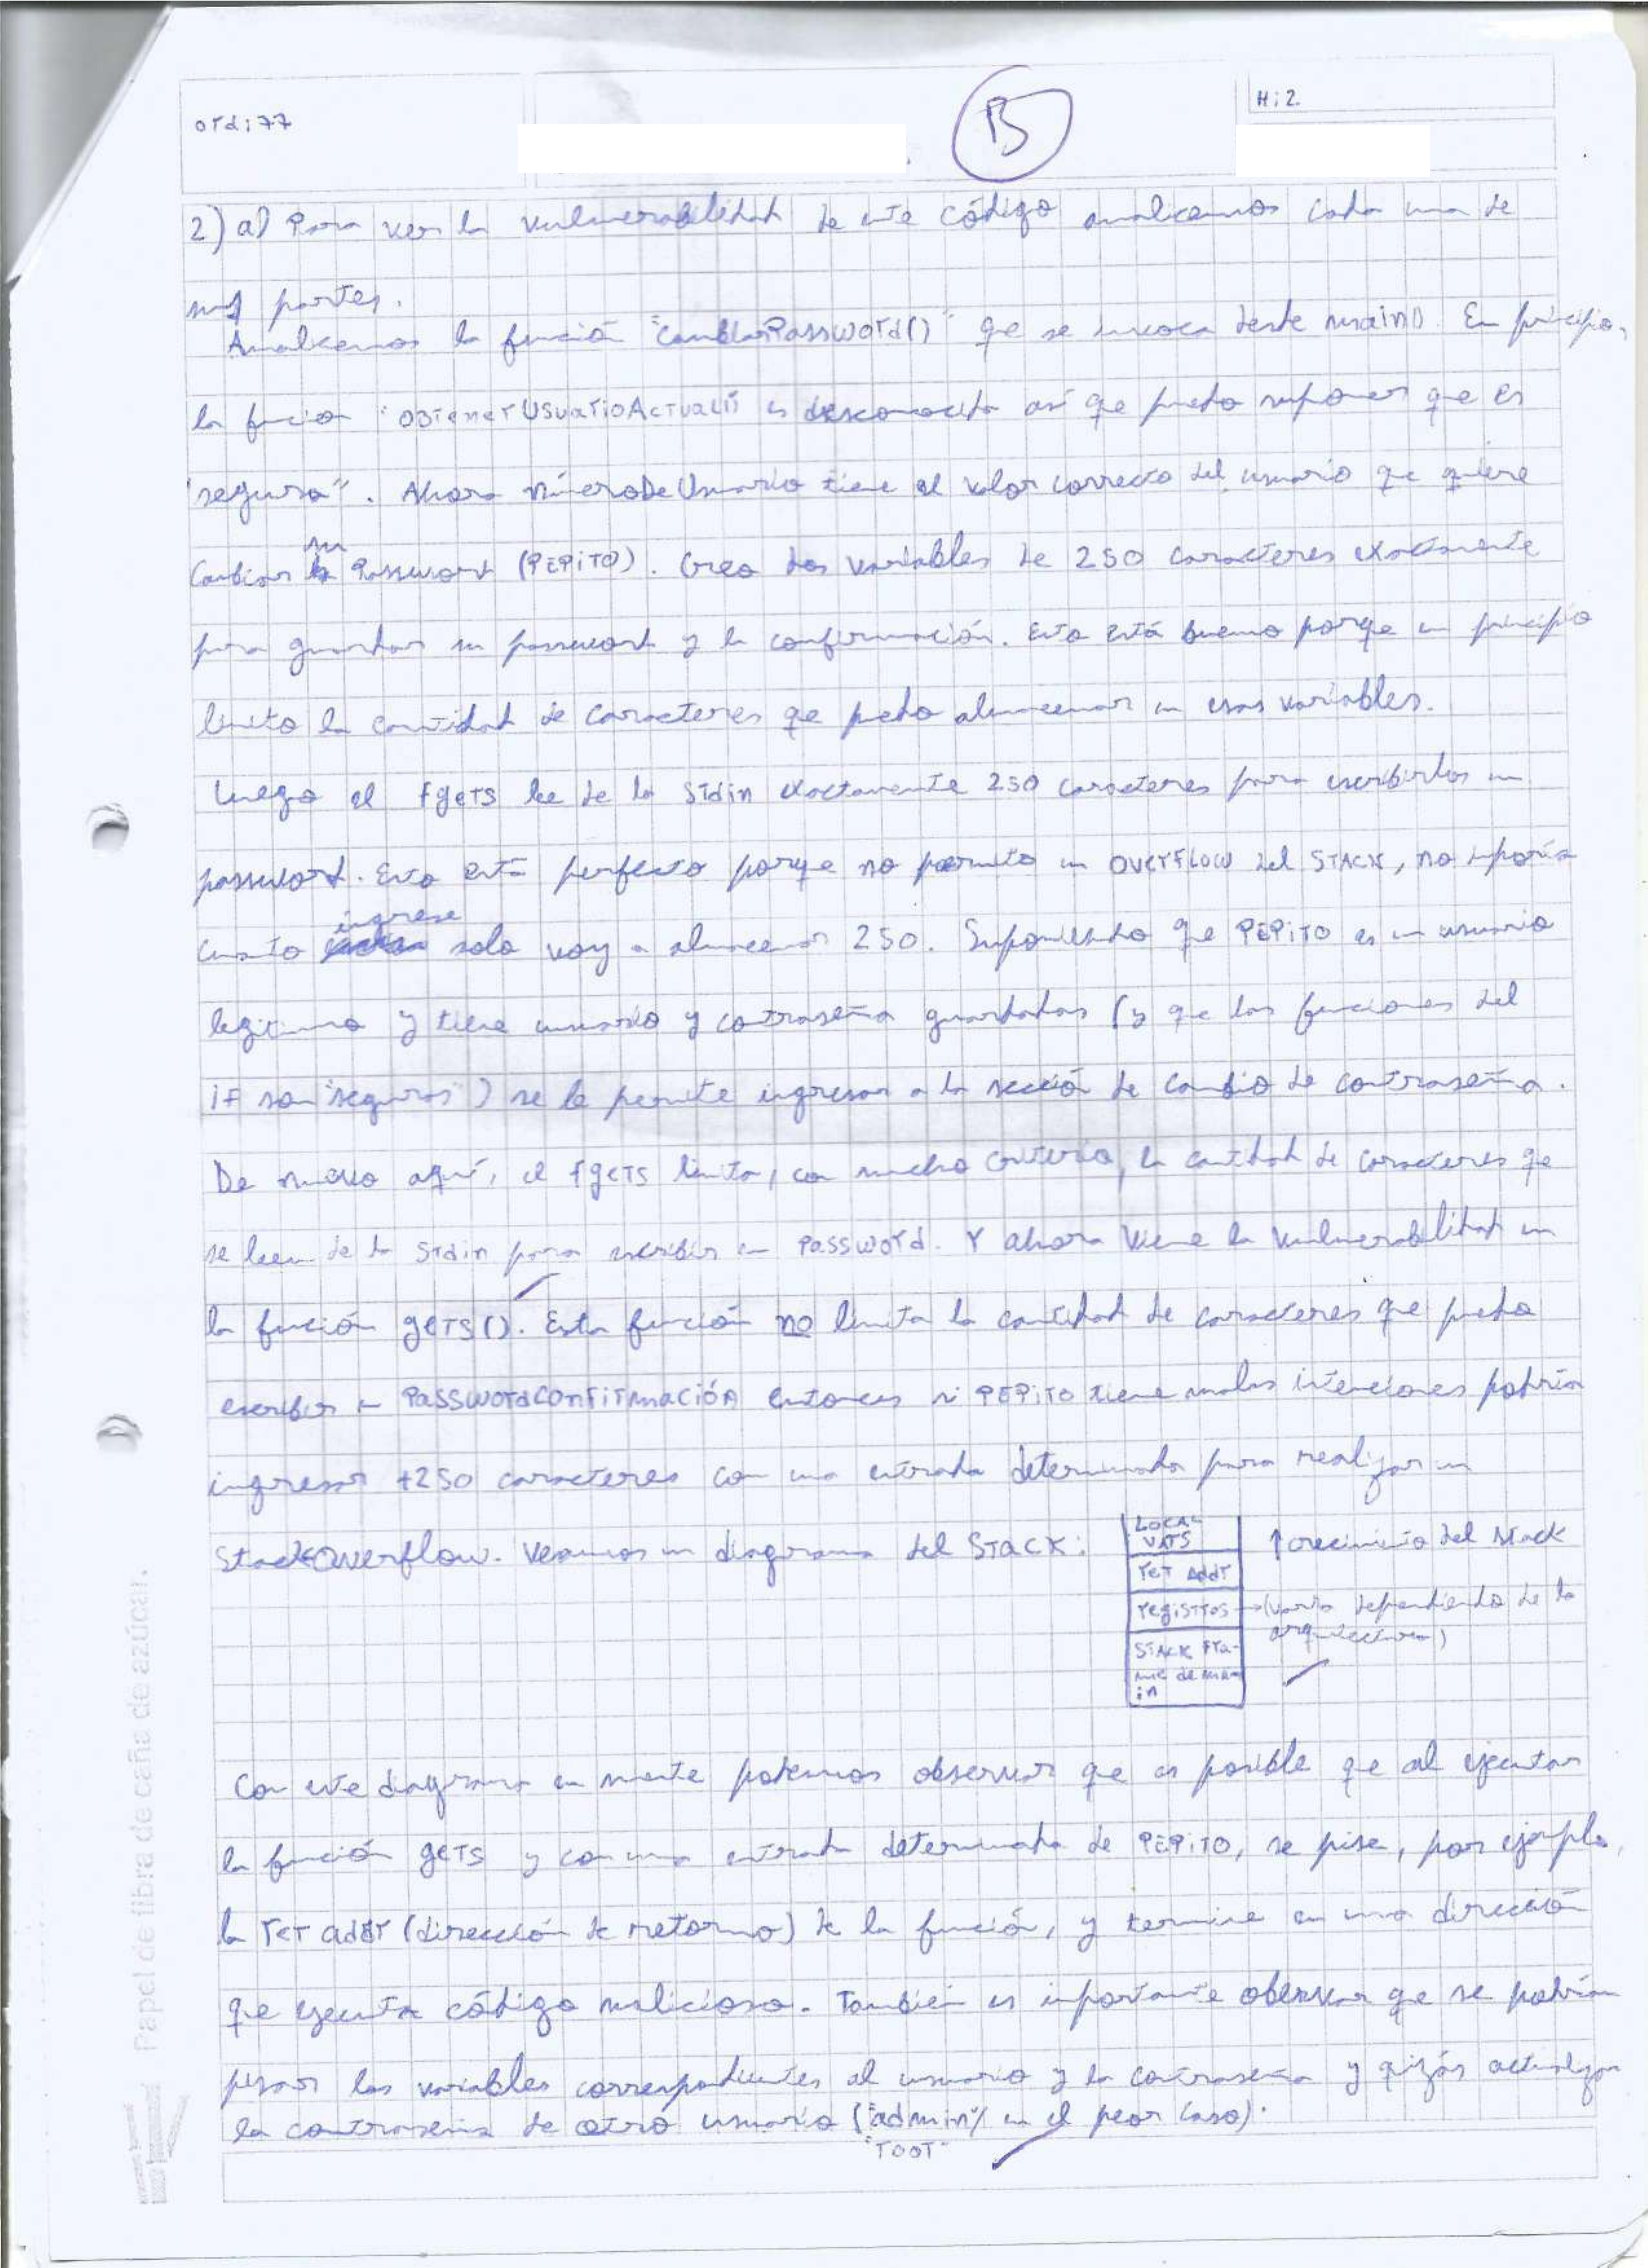 ord: 77
B
H: 2.
2) a) Para ver la vulnerabilidad de este código analicemos cada una de
sus partes.
Analicemos la función "CambiarPassword()" qe se invoca desde main(). En principio,
la función "obtenerUsuarioActual()" es desconocida así qe puedo suponer que es
"segura". Ahora númeroDeUsuario tiene el valor correcto del usuario qe quiere
cambiar su Password (PEPITO). Creo dos variables de 250 caracteres exactamente
para guardar su password y la confirmación. Esto está bueno porqe en principio
limito la cantidad de caracteres qe puedo almacenar en esas variables.
Luego el fgets lee de la stdin exactamente 250 caracteres para escribirlos en
password. Esto está perfecto porqe no permite un OVERFLOW del STACK, no importa
cuanto ingrese solo voy a almacenar 250. Suponiendo qe PEPITO es un usuario
legítimo y tiene usuario y contraseña guardados (y que las funciones del
if son "seguras") se le permite ingresar a la sección de cambio de contraseña.
De nuevo aquí, el fgets limita, con mucho criterio, la cantidad de caracteres qe
se leen de la stdin para escribir en Password. Y ahora viene la vulnerabilidad en
la función gets(). Esta función no limita la cantidad de caracteres que puedo
escribir en PasswordConfirmación entonces si PEPITO tiene malas intenciones podría
ingresar +250 caracteres con una entrada determinada para realizar un
StackOverflow. Veamos un diagrama del STACK:
LOCAL
VARS
ret Addr
registros → (varía dependiendo de la
arquitectura)
STACK Fra-
me de ma-
in
↑ crecimiento del stack
Con este diagrama en mente podemos observar qe es posible qe al ejecutar
la función gets y con una entrada determinada de PEPITO, se pise, por ejemplo,
la ret addr (dirección de retorno) de la función, y termine en una dirección
qe ejecuta código malicioso. También es importante observar qe se podrían
pisar las variables correspondientes al usuario y la contraseña y quizás actualizar
la contraseña de otro usuario ("admin"/ en el peor caso).
"root"
Papel de fibra de caña de azúcar.